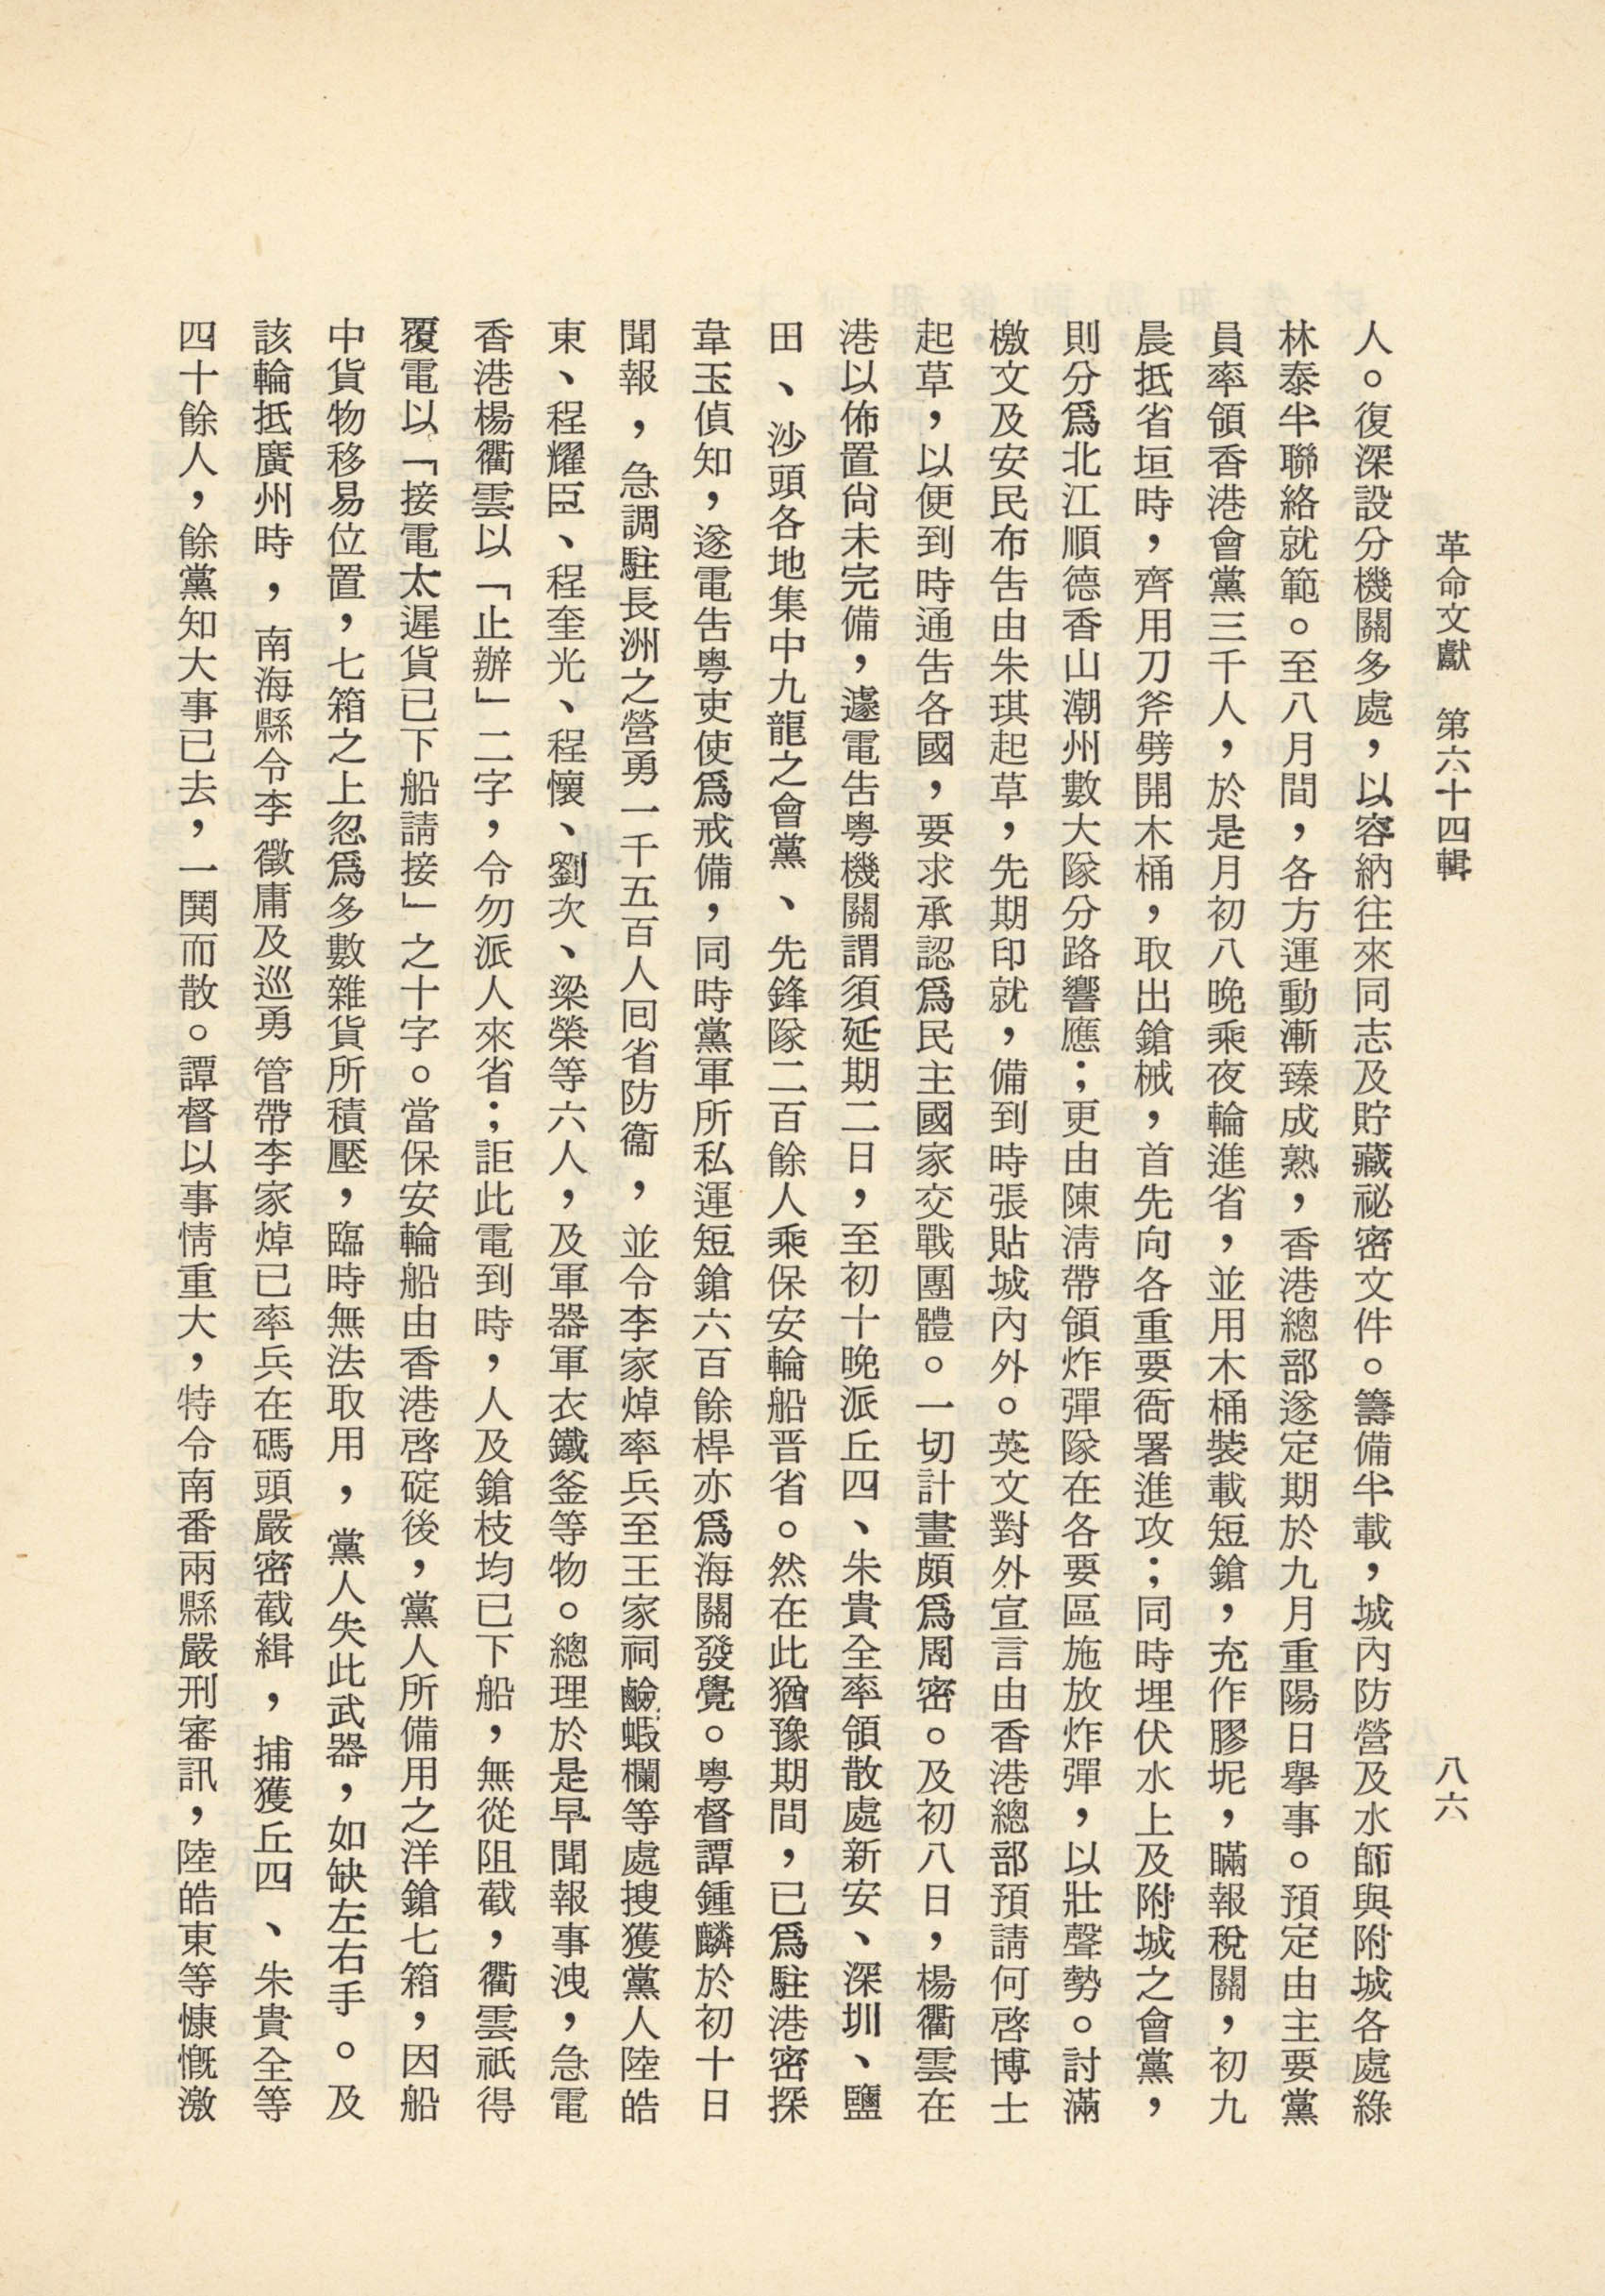 革命文獻　第六十四輯　八六
人。復深設分機關多處，以容納往來同志及貯藏祕密文件。籌備半載，城內防營及水師與附城各處綠
林泰半聯絡就範。至八月間，各方運動漸臻成熟，香港總部遂定期於九月重陽日舉事。預定由主要黨
員率領香港會黨三千人，於是月初八晚乘夜輪進省，並用木桶裝載短鎗，充作膠坭，瞞報稅關，初九
晨抵省垣時，齊用刀斧劈開木桶，取出鎗械，首先向各重要衙署進攻；同時埋伏水上及附城之會黨，
則分爲北江順德香山潮州數大隊分路響應；更由陳清帶領炸彈隊在各要區施放炸彈，以壯聲勢。討滿
檄文及安民布告由朱琪起草，先期印就，備到時張貼城內外。英文對外宣言由香港總部預請何啓博士
起草，以便到時通告各國，要求承認爲民主國家交戰團體。一切計畫頗爲周密。及初八日，楊衢雲在
港以佈置尙未完備，遽電告粵機關謂須延期二日，至初十晚派丘四、朱貴全率領散處新安、深圳、鹽
田、沙頭各地集中九龍之會黨、先鋒隊二百餘人乘保安輪船晋省。然在此猶豫期間，已爲駐港密探
韋玉偵知，遂電告粵吏使爲戒備，同時黨軍所私運短鎗六百餘桿亦爲海關發覺。粵督譚鍾麟於初十日
聞報，急調駐長洲之營勇一千五百人囘省防衞，並令李家焯率兵至王家祠鹹蝦欄等處搜獲黨人陸皓
東、程耀臣、程奎光、程懷、劉次、梁榮等六人，及軍器軍衣鐵釜等物。總理於是早聞報事洩，急電
香港楊衢雲以「止辦」二字，令勿派人來省；詎此電到時，人及鎗枝均已下船，無從阻截，衢雲祇得
覆電以「接電太遲貨已下船請接」之十字。當保安輪船由香港啓碇後，黨人所備用之洋鎗七箱，因船
中貨物移易位置，七箱之上忽爲多數雜貨所積壓，臨時無法取用，黨人失此武器，如缺左右手。及
該輪抵廣州時，南海縣令李徵庸及巡勇管帶李家焯已率兵在碼頭嚴密截緝，捕獲丘四、朱貴全等
四十餘人，餘黨知大事已去，一鬨而散。譚督以事情重大，特令南番兩縣嚴刑審訊，陸皓東等慷慨激